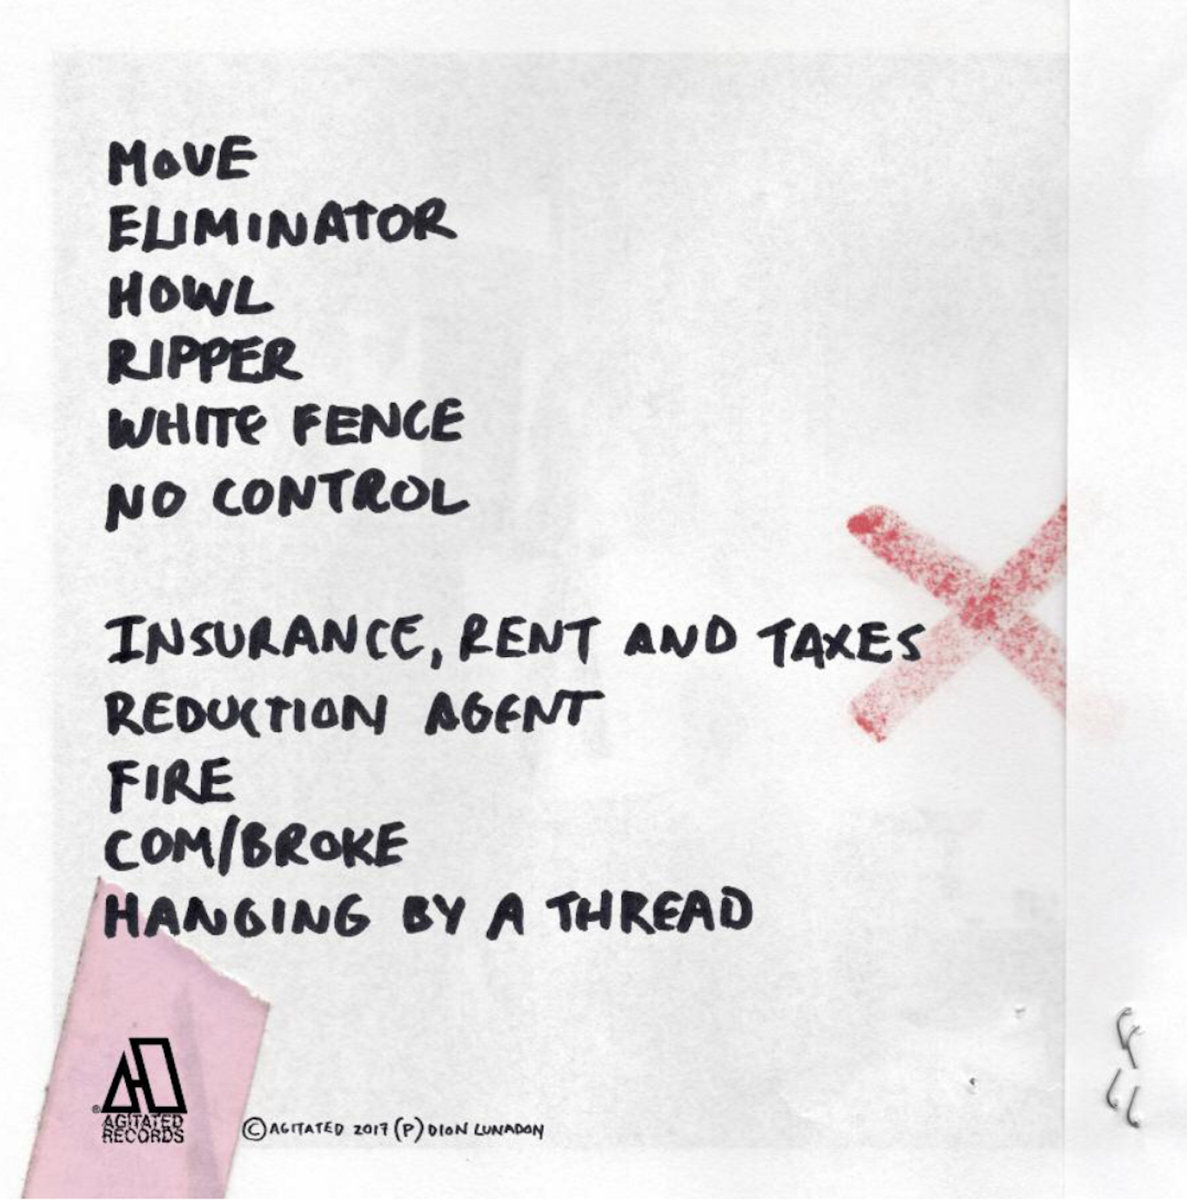 MOVE
ELIMINATOR
HOWL
RIPPER
WHITE FENCE
NO CONTROL
INSURANCE, RENT AND TAXES
REDUCTION AGENT
FIRE
COM/BROKE
HANGING BY A THREAD
® AGITATED
RECORDS
© AGITATED 2017 (P) DION LUNADON